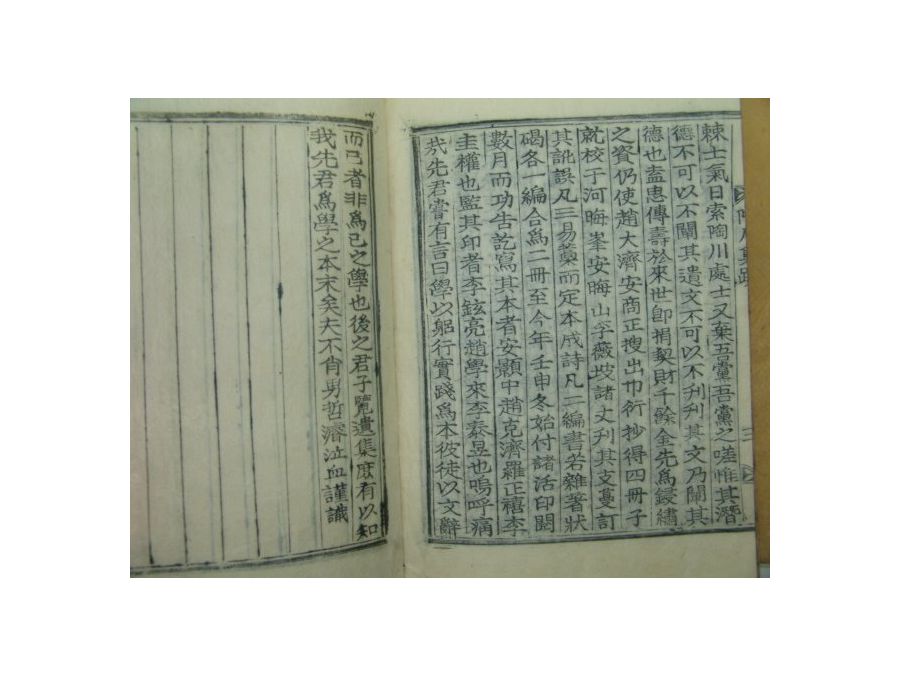 棘士氣日索陶川處士又棄吾黨吾黨之嗟惟其潛
德不可以不闡其遺文不可以不刊刊其文乃闡其
德也盍思傳壽於來世卽捐契財千餘金先爲鋟繡
之資仍使趙大濟安商正搜出巾衍抄得四冊子
就校于河晦峯安晦山李薇坡諸丈刊其支蔓訂
其訛誤凡三易藁而定本成詩凡二編書若雜著狀
碣各一編合爲二冊至今年壬申冬始付諸活印閱
數月而功告訖寫其本者安顥中趙克濟羅正禧李
圭權也監其印者李鉉亮趙學來李泰昱也嗚呼痛
哉先君嘗有言曰學以躬行實踐爲本彼徒以文辭
而已者非爲己之學也後之君子覽遺集庶有以知
我先君爲學之本末矣夫不肖男哲濬泣血謹識